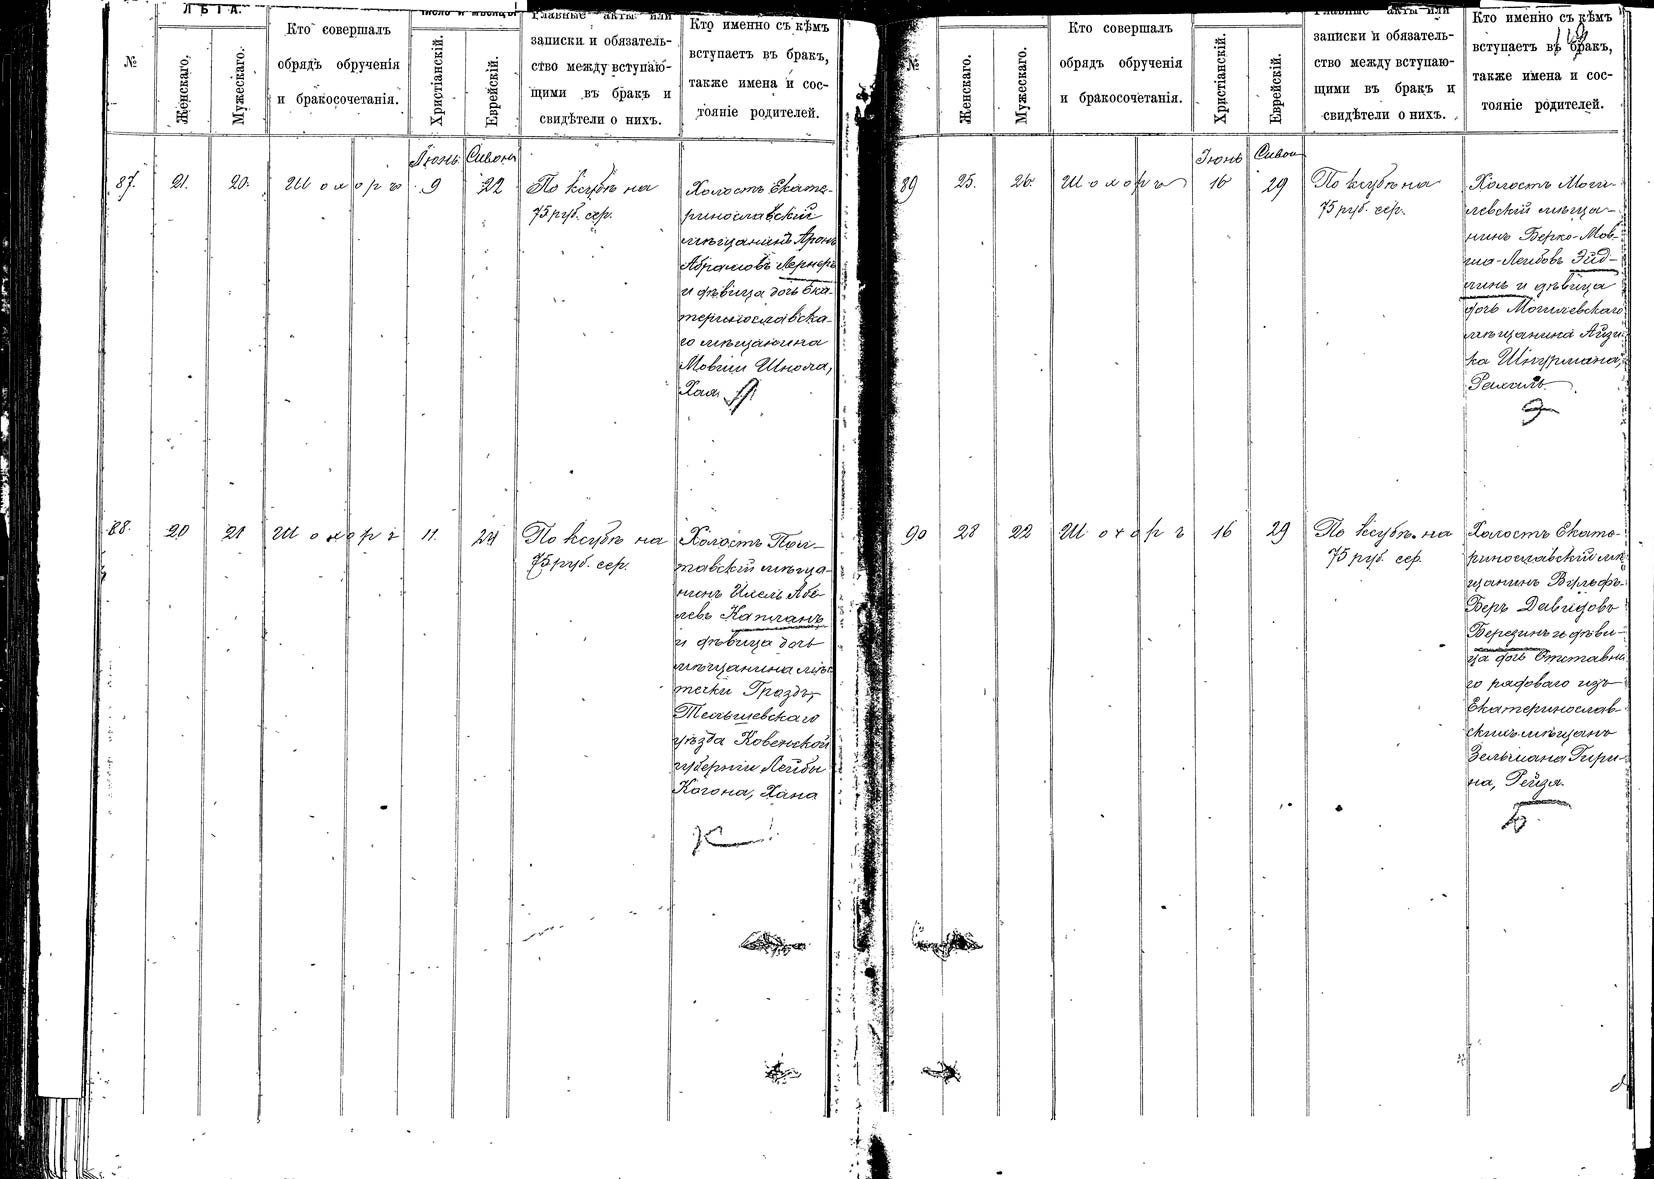 №
ЛѢТА.
Женскаго.
Мужескаго.
Кто совершалъ
обрядъ обрученія
и бракосочетанія.
Число и мѣсяцъ
Христіанскій.
Еврейскій.
Главные акты или
записки и обязатель-
ство между вступаю-
щими въ бракъ и
свидѣтели о нихъ.
Кто именно съ кѣмъ
вступаетъ въ бракъ,
также имена и сос-
тояніе родителей.
87.
21.
20.
Шохоръ
Іюнь
9
Сивона
22
По ксубѣ на
75 руб. сер.
Холостъ Екате-
ринославскій
мѣщанинъ Аронъ
Абрамовъ Лернеръ
и дѣвица дочь Ека-
теринославска-
го мѣщанина
Мовши Школа,
Хая.
88.
20
21
Шохоръ
11.
24
По ксубѣ на
75 руб. сер.
Холостъ Пол-
тавскій мѣща-
нинъ Абе-
левъ Капланъ
и дѣвица дочь
мѣщанина мѣс-
течки
Тельшевскаго
уѣзда Ковенской
губерніи Лейбы
Когона, Хана
К
№
Женскаго.
Мужескаго.
Кто совершалъ
обрядъ обрученія
и бракосочетанія.
Христіанскій.
Еврейскій.
Главные акты или
записки и обязатель-
ство между вступаю-
щими въ бракъ и
свидѣтели о нихъ.
Кто именно съ кѣмъ
вступаетъ въ бракъ,
также имена и сос-
тояніе родителей.
89
25.
26.
Шохоръ
Іюнь
16
Сивона
29
По ксубѣ на
75 руб. сер.
Холостъ Моги-
левскій мѣща-
нинъ Берко-Мов-
ша-Лейбовъ Эйд-
линъ и дѣвица
дочь Могилевскаго
мѣщанина Айзи-
ка Шнурмана,
Рахиль.
Э
90
23
22
Шохоръ
16
29
По ксубѣ на
75 руб. сер.
Холостъ Екате-
ринославскій мѣ-
щанинъ Вульфъ-
Беръ Давидовъ
Березинъ и дѣви-
ца дочь Отставна-
го рядоваго изъ
Екатеринослав-
скихъ мѣщанъ
Зельмана Гири-
на, Рейзя.
Б